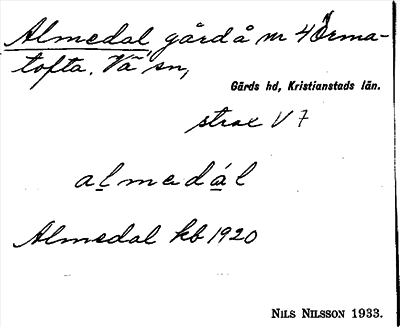 Almedal, gård å nr 4 Örma-
tofta. Vä sn,
Gärds hd, Kristianstads län.
strax V 7
almedál
Almedal kb 1920
NILS NILSSON 1933.